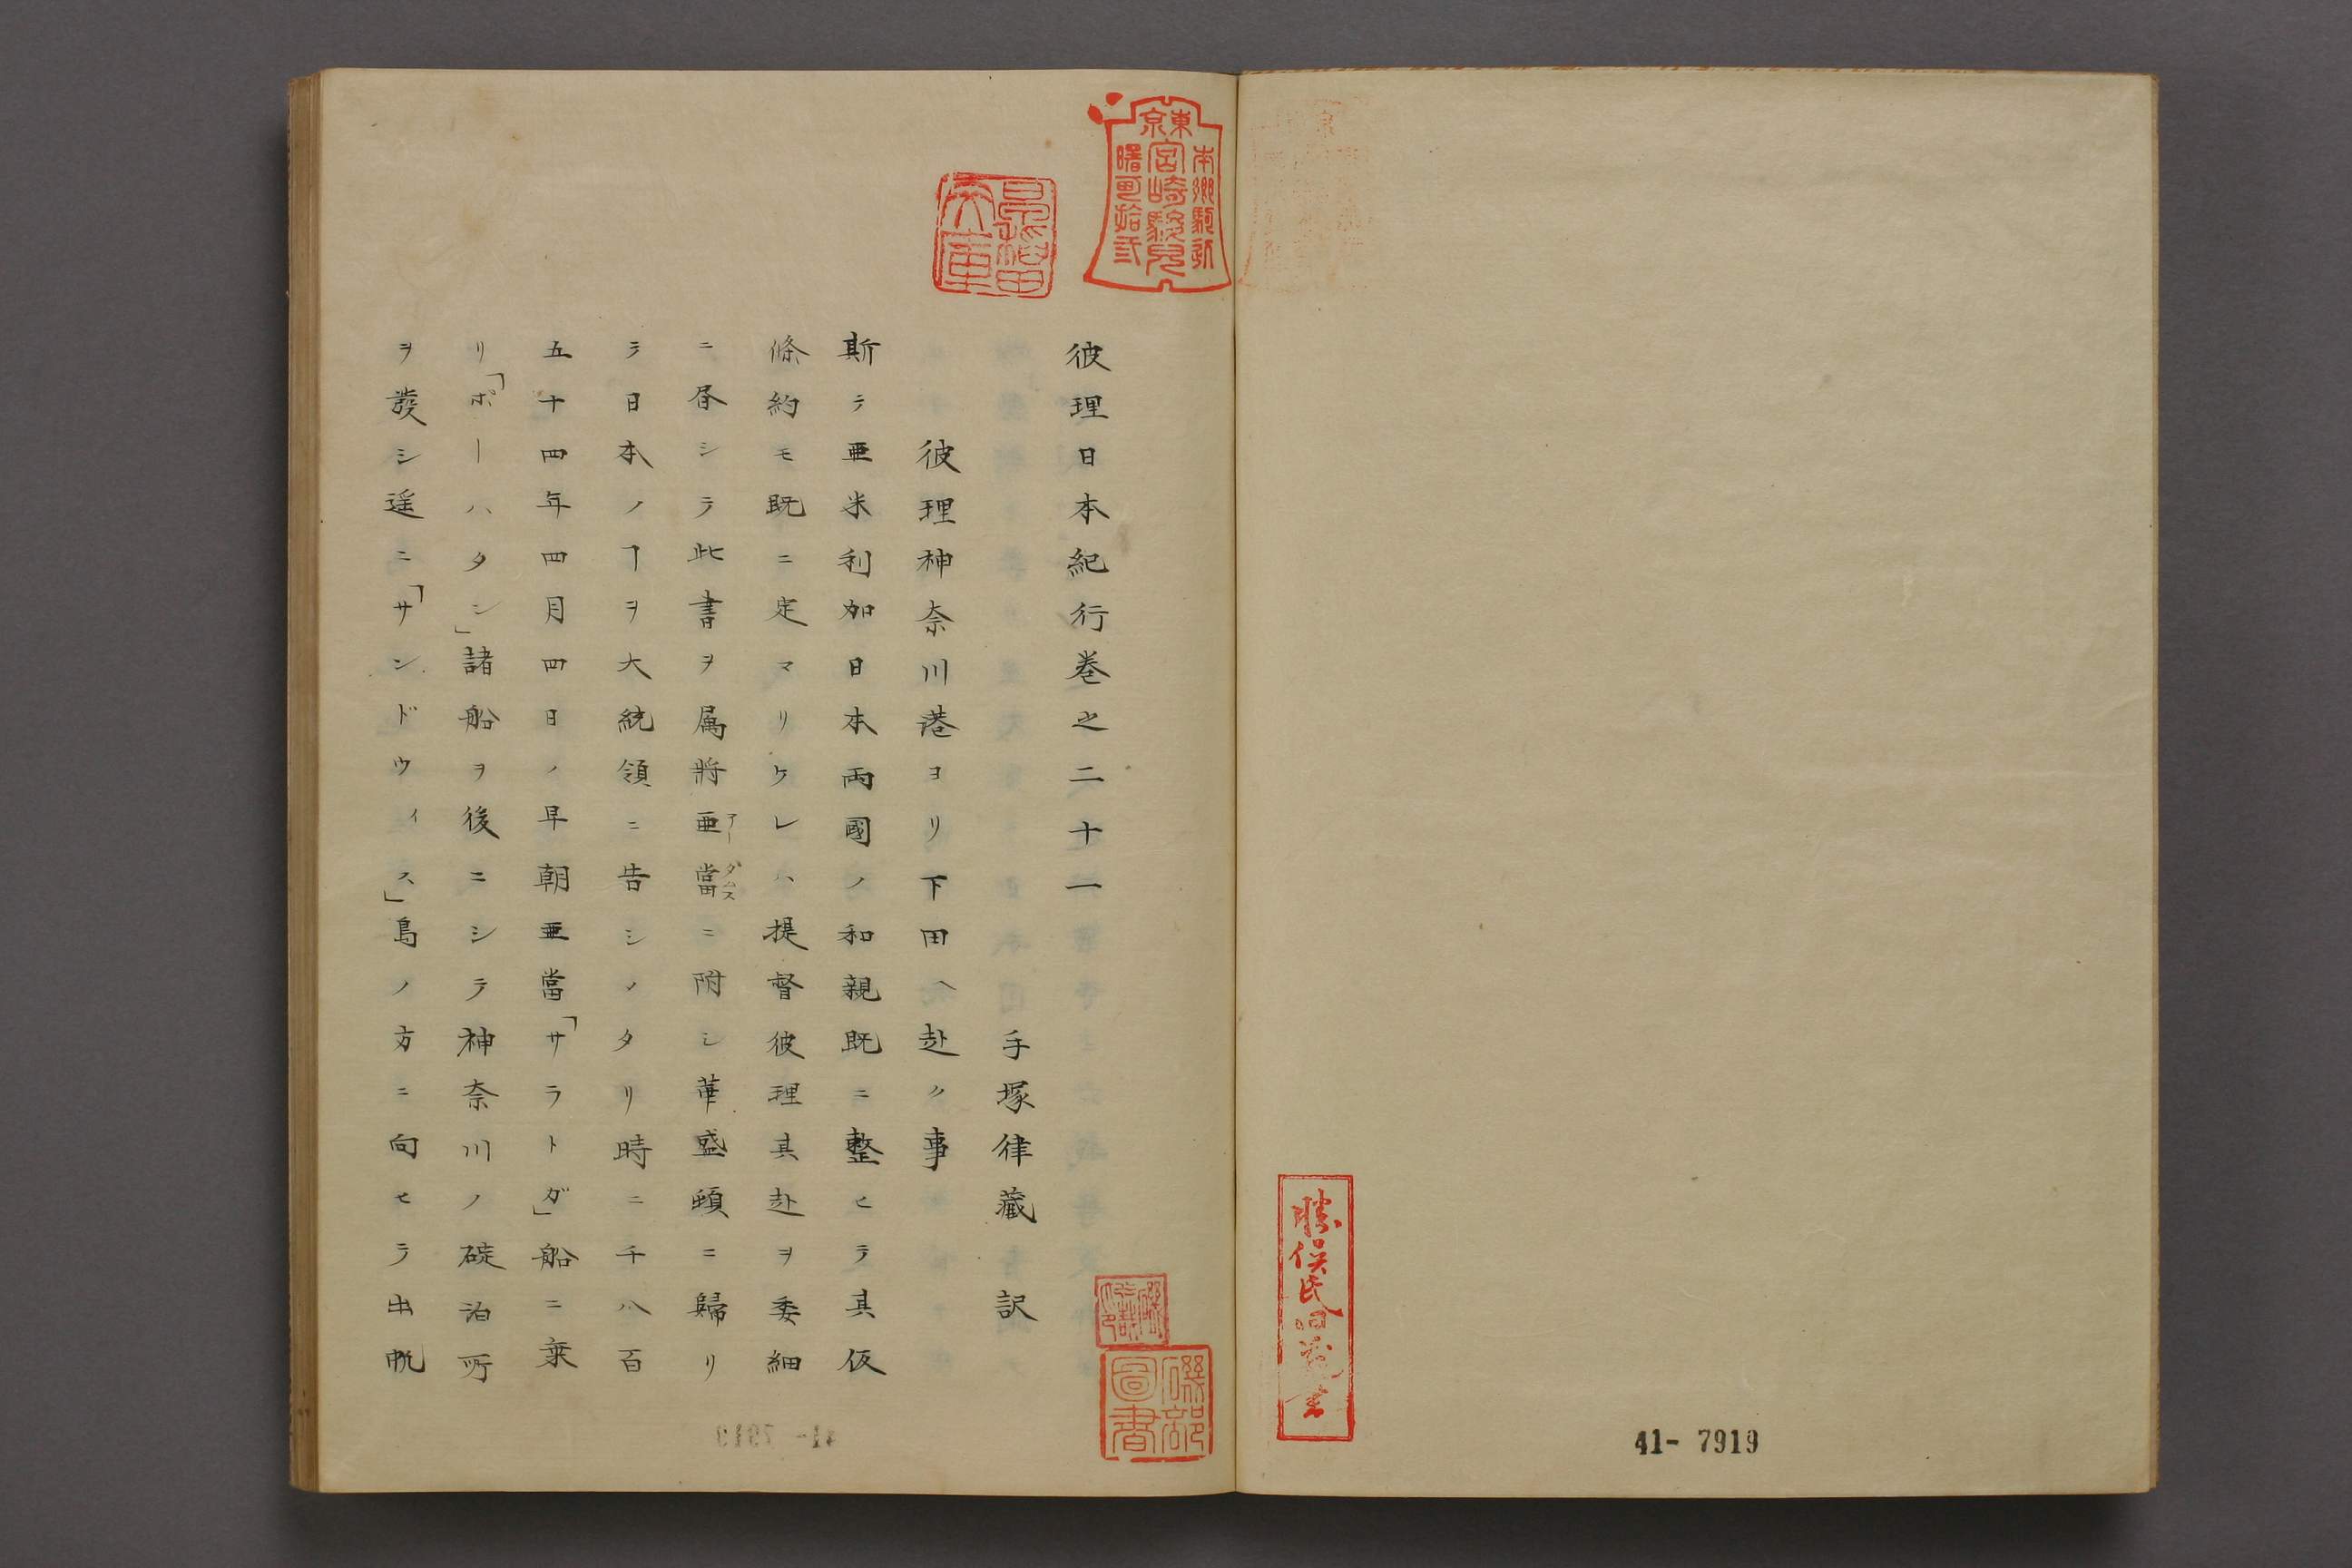 41- 7919
東京
本郷駒込
宮崎駿児
曙町拾弐
文庫
彼理日本紀行巻之二十一
手塚律蔵 訳
彼理神奈川港ヨリ下田ヘ赴ク事
斯テ亜米利加日本両國ノ和親既ニ整ヒテ其仮
條約モ既ニ定マリケレハ提督彼理其赴ヲ委細
ニ昼シテ此書ヲ属將亜當アーダムスニ附シ華盛頓ニ歸リ
テ日本ノヿヲ大統領ニ告シメタリ時ニ千八百
五十四年四月四日ノ早朝亜當「サラトガ」船ニ乗
リ「ポーハタン」諸船ヲ後ニシテ神奈川ノ碇泊所
ヲ發シ遥ニ「サンドウィス」島ノ方ニ向セテ出帆
磯部
圖書